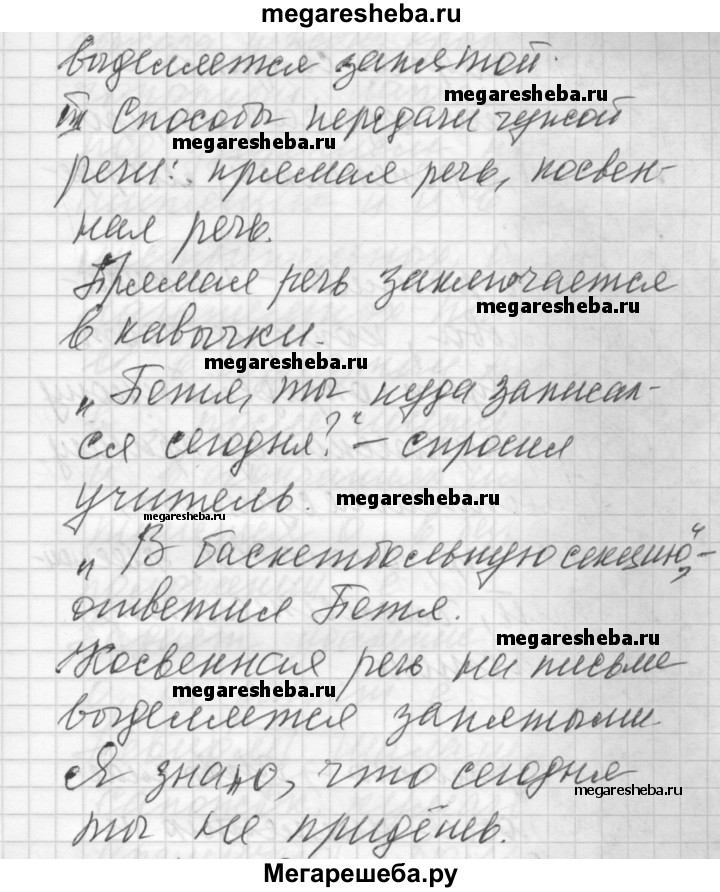 megaresheba.ru
выделяется запятой.
megaresheba.ru
III Способы передачи чужой
megaresheba.ru
речи: прямая речь, косвен-
ная речь.
Прямая речь заключается
megaresheba.ru
в кавычки.
megaresheba.ru
„Петя, ты куда записал-
ся сегодня?“ – спросил
учитель.
megaresheba.ru
megaresheba.ru
„В баскетбольную секцию“, –
ответил Петя.
megaresheba.ru
Косвенная речь на письме
megaresheba.ru
выделяется запятыми
Я знаю, что сегодня
megaresheba.ru
ты не придёшь.
Мегарешеба.ру